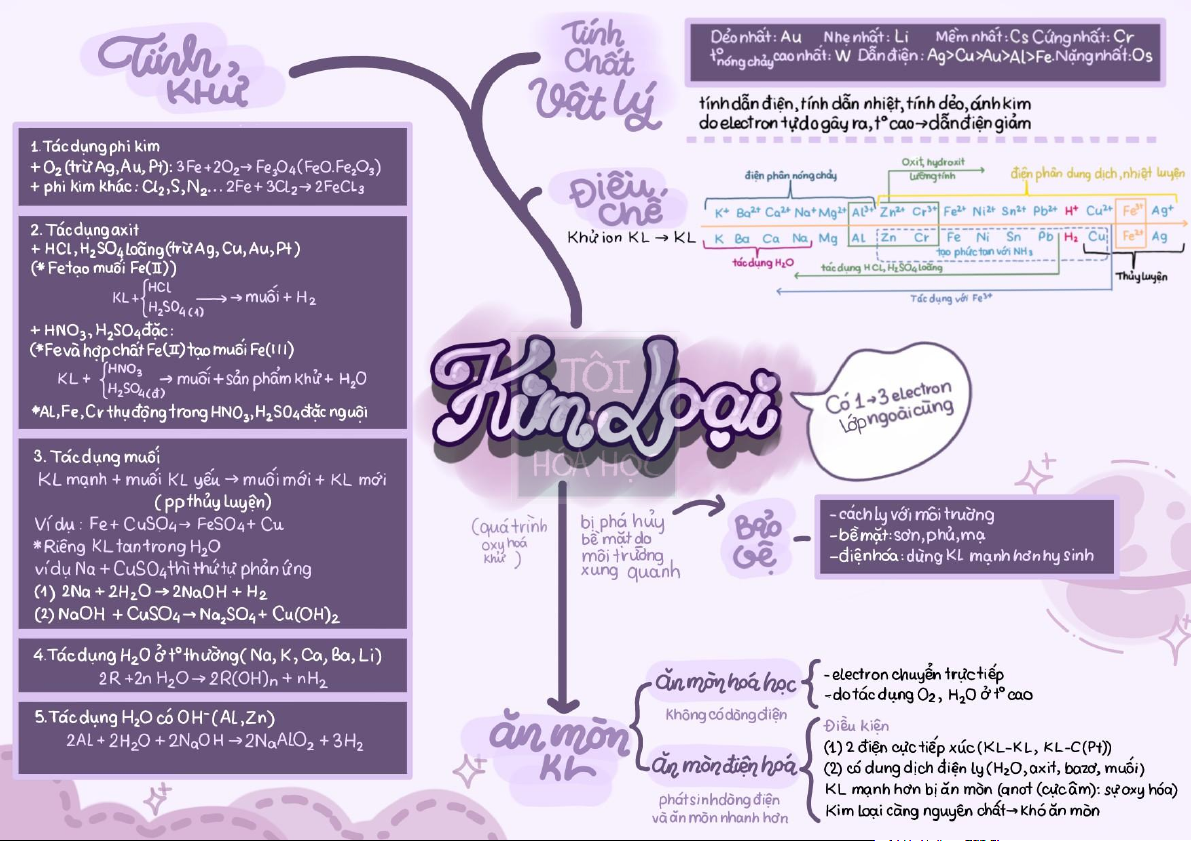 Tính khử
1. Tác dụng phi kim
+ O₂ (trừ Ag, Au, Pt): 3Fe + 2O₂ → Fe₃O₄(FeO.Fe₂O₃)
+ phi kim khác: Cl₂, S, N₂... 2Fe + 3Cl₂ → 2FeCl₃
2. Tác dụng axit
+ HCl, H₂SO₄ loãng (trừ Ag, Cu, Au, Pt)
(* Fe tạo muối Fe(II))
KL + { HCl
H₂SO₄(l) ⟶ → muối + H₂
+ HNO₃, H₂SO₄ đặc:
(*Fe và hợp chất Fe(II) tạo muối Fe(III)
KL + { HNO₃
H₂SO₄(đ) → muối + sản phẩm khử + H₂O
*Al, Fe, Cr thụ động trong HNO₃, H₂SO4 đặc nguội
3. Tác dụng muối
KL mạnh + muối KL yếu → muối mới + KL mới
(pp thủy luyện)
Ví dụ: Fe + CuSO₄ → FeSO₄ + Cu
*Riêng KL tan trong H₂O
ví dụ Na + CuSO₄ thì thứ tự phản ứng
(1) 2Na + 2H₂O → 2NaOH + H₂
(2) NaOH + CuSO₄ → Na₂SO₄ + Cu(OH)₂
4. Tác dụng H₂O ở t° thường (Na, K, Ca, Ba, Li)
2R + 2n H₂O → 2R(OH)n + nH₂
5. Tác dụng H₂O có OH⁻ (Al, Zn)
2Al + 2H₂O + 2NaOH → 2NaAlO₂ + 3H₂
Tính
Chất
Vật lý
Dẻo nhất: Au Nhẹ nhất: Li Mềm nhất: Cs Cứng nhất: Cr
t° nóng chảy cao nhất: W Dẫn điện: Ag>Cu>Au>Al>Fe. Nặng nhất: Os
tính dẫn điện, tính dẫn nhiệt, tính dẻo, ánh kim
do electron tự do gây ra, t° cao → dẫn điện giảm
Điều
chế
Khử ion KL → KL
Oxit, hydroxit
lưỡng tính
điện phân nóng chảy
điện phân dung dịch, nhiệt luyện
K⁺ Ba²⁺ Ca²⁺ Na⁺ Mg²⁺ Al³⁺ Zn²⁺ Cr³⁺ Fe²⁺ Ni²⁺ Sn²⁺ Pb²⁺ H⁺ Cu²⁺ Fe³⁺ Ag⁺
K Ba Ca Na Mg Al Zn Cr Fe Ni Sn Pb H₂ Cu Fe²⁺ Ag
tạo phức tan với NH₃
tác dụng H₂O
tác dụng HCl, H₂SO₄ loãng
Thủy luyện
Tác dụng với Fe³⁺
Kim Loại
TÔI
HÓA HỌC
Có 1→3 electron
lớp ngoài cùng
(quá trình
oxy hoá
khử )
bị phá hủy
bề mặt do
môi trường
xung quanh
Bảo
vệ
- cách ly với môi trường
- bề mặt: sơn, phủ, mạ
- điện hóa: dùng KL mạnh hơn hy sinh
ăn mòn
KL
ăn mòn hoá học
không có dòng điện
- electron chuyển trực tiếp
- do tác dụng O₂, H₂O ở t° cao
ăn mòn điện hoá
phát sinh dòng điện
và ăn mòn nhanh hơn
Điều kiện
(1) 2 điện cực tiếp xúc (KL-KL, KL-C(Pt))
(2) có dung dịch điện ly (H₂O, axit, bazơ, muối)
KL mạnh hơn bị ăn mòn (anot (cực âm): sự oxy hóa)
Kim loại càng nguyên chất → khó ăn mòn